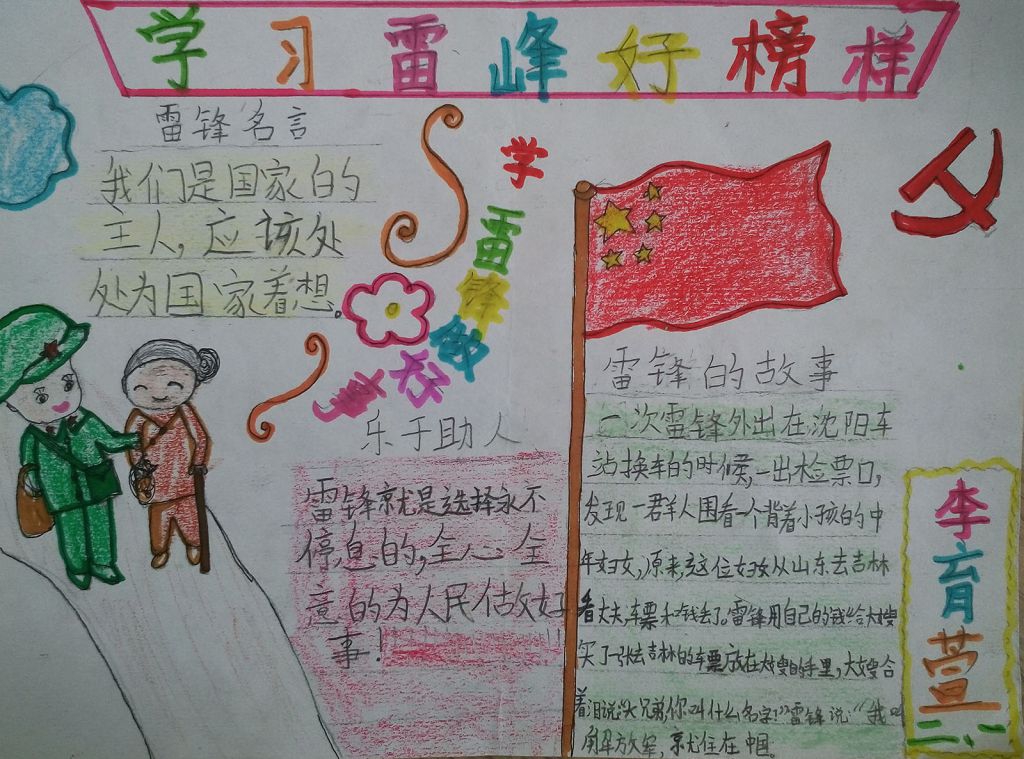 学习雷峰好榜样
雷锋名言
我们是国家的
主人，应该处
处为国家着想。
学雷锋做好事
乐于助人
雷锋就是选择永不
停息的，全心全
意的为人民做好
事！
雷锋的故事
一次雷锋外出在沈阳车
站换车的时候，一出检票口，
发现一群人围看一个背着小孩的中
年妇女，原来这位妇女从山东去吉林
看丈夫，车票和钱丢了。雷锋用自己的钱给大嫂
买了一张去吉林的车票放在大嫂的手里，大嫂含
着泪说：“大兄弟，你叫什么名字！”雷锋说：“我叫
解放军，就住在中国。
李育萱
二、一